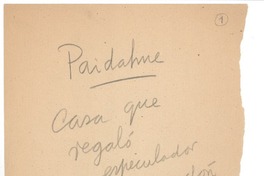 1
Paidahue
Casa que
regaló
especulador